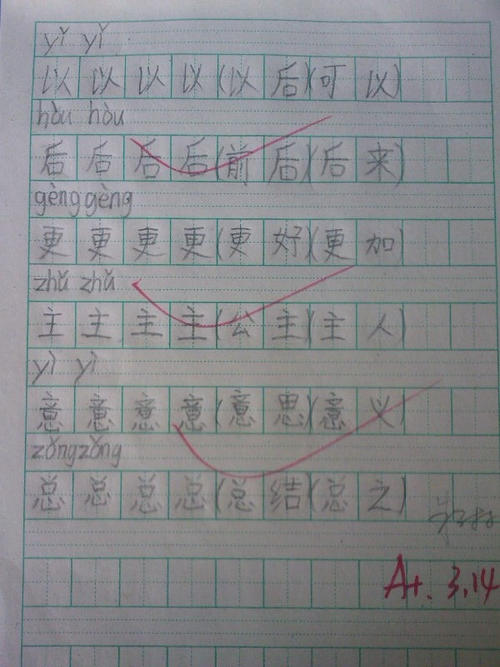 yǐ yǐ
以以以以(以后)(可以)
hòu hòu
后后后后(前后)(后来)
gèng gèng
更更更更(更好)(更加)
zhǔ zhǔ
主主主主(公主)(主人)
yì yì
意意意意(意思)(意义)
zǒng zǒng
总总总总(总结)(总之)
A+. 3.14